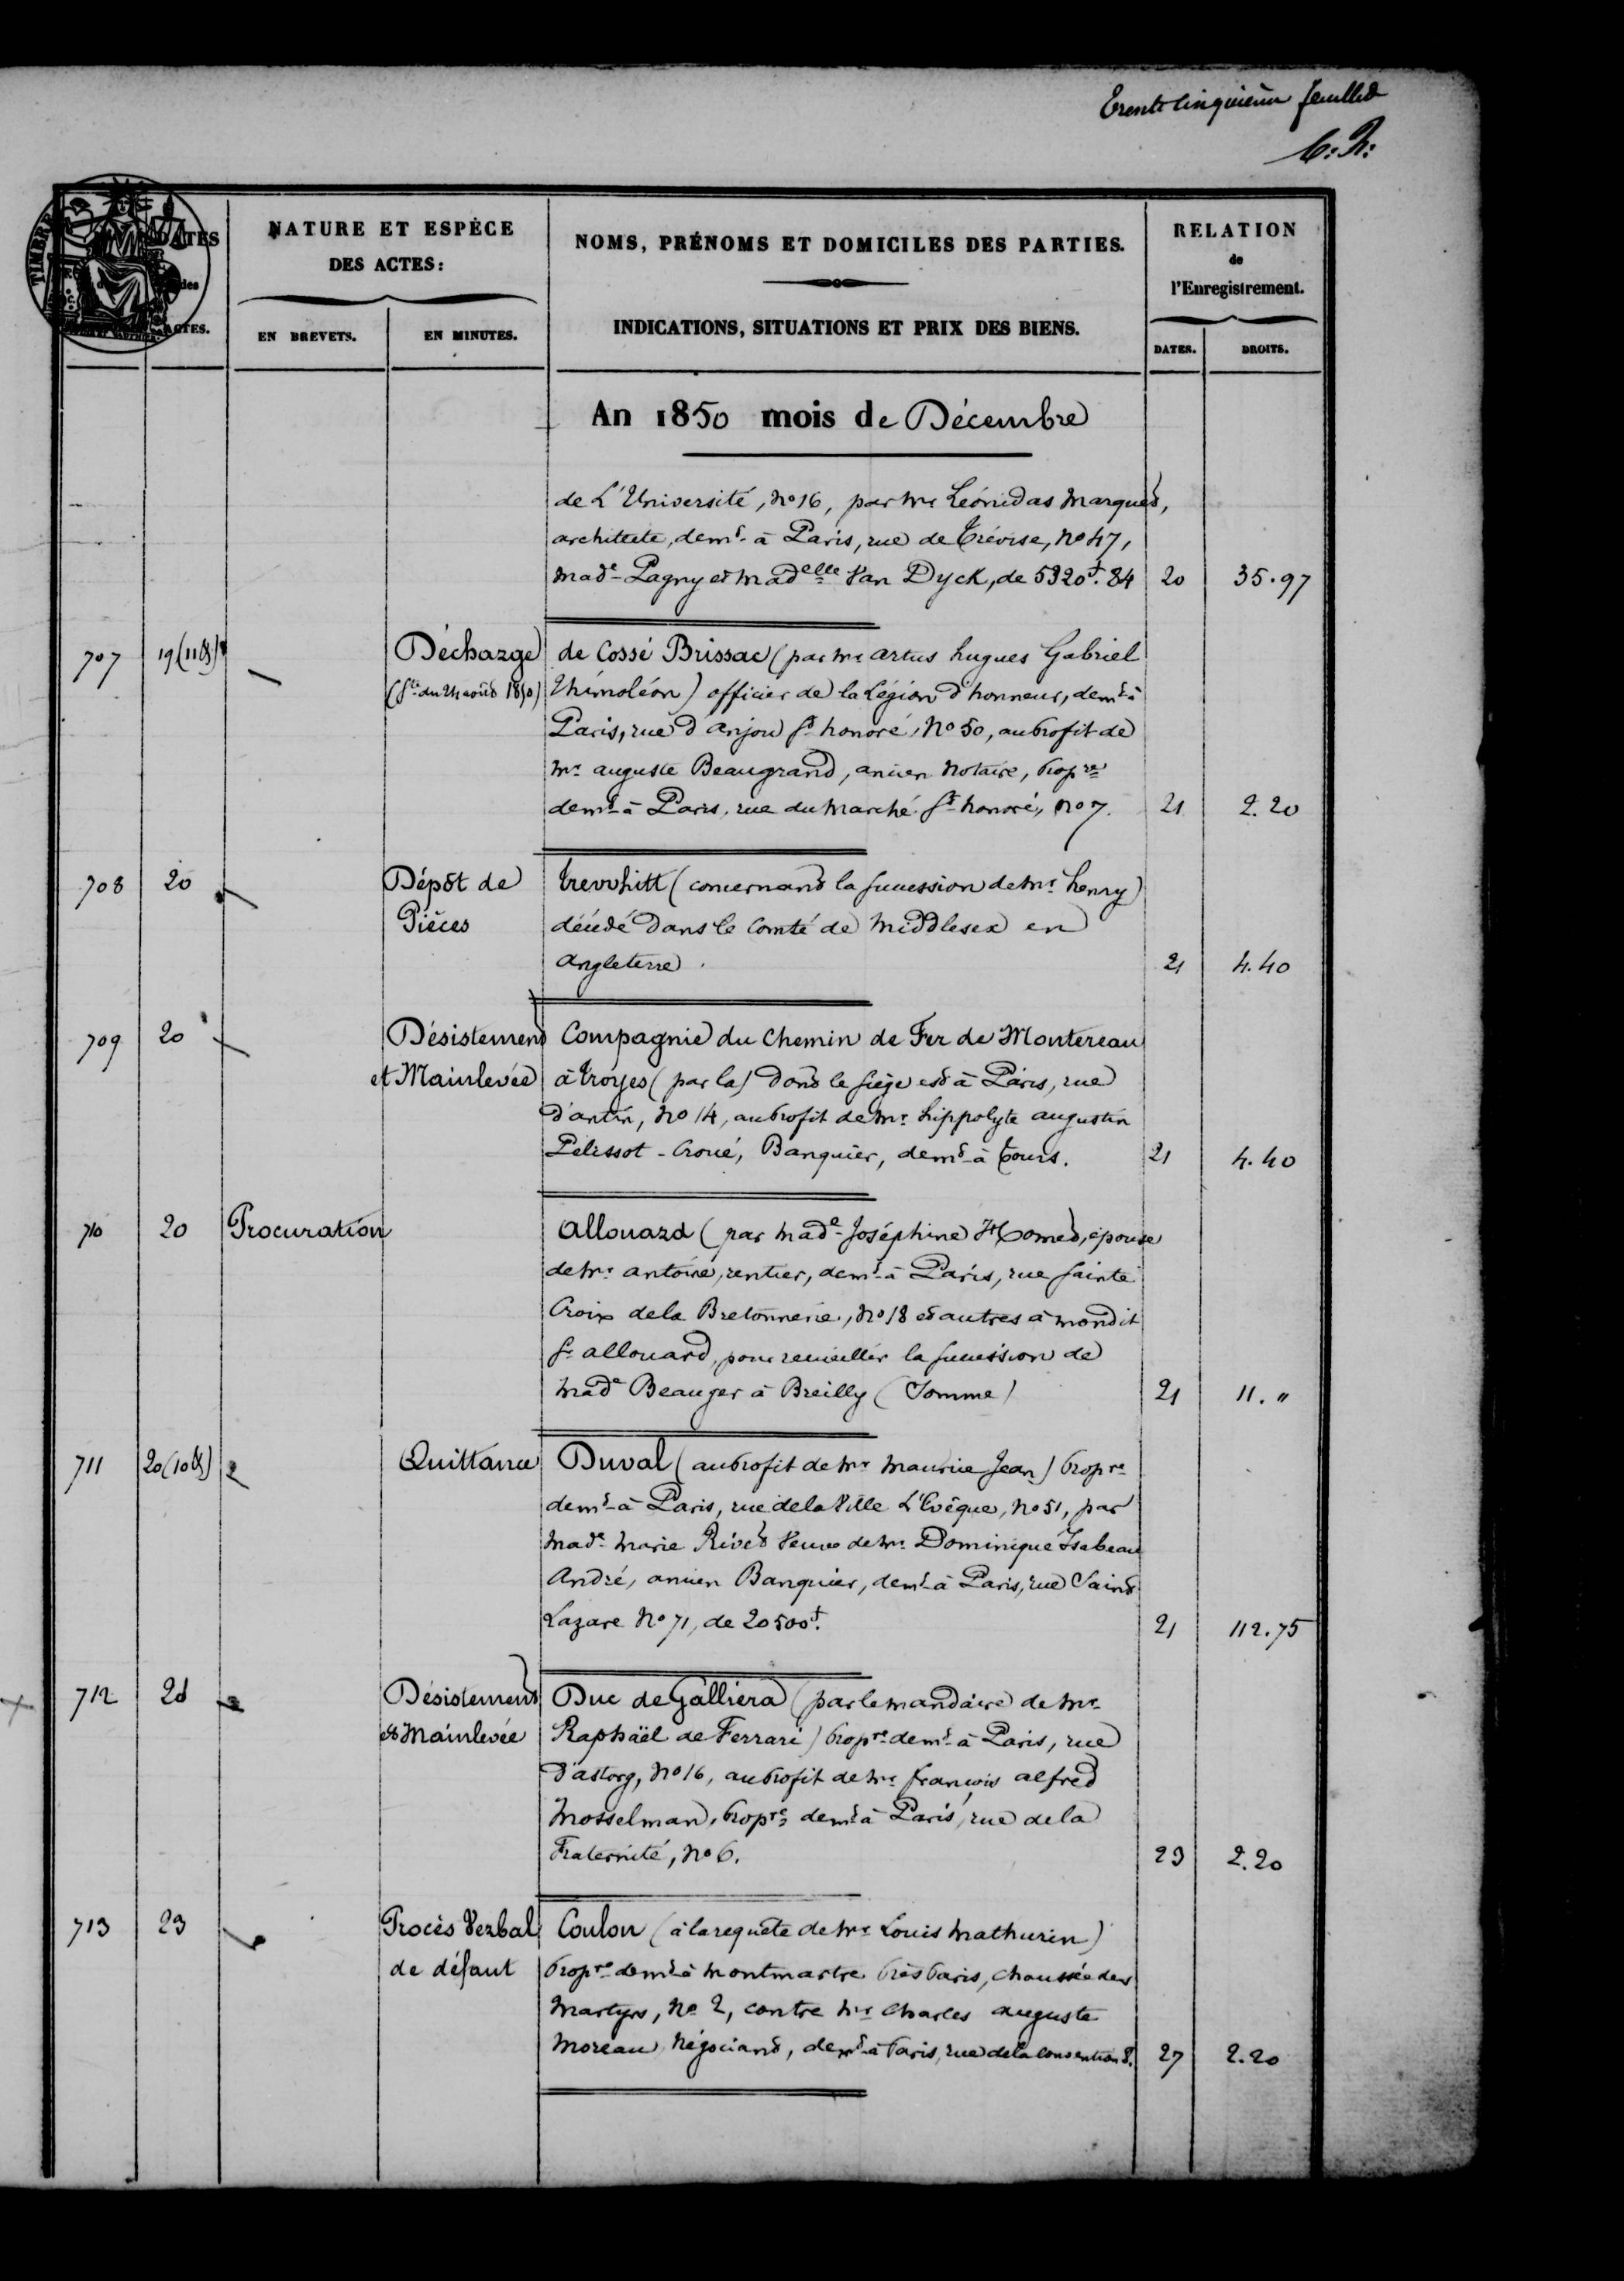 Trente cinquième feuillet
C. R.
TIMBRE
DATES des ACTES.
NATURE ET ESPÈCE
DES ACTES:
EN BREVETS. EN MINUTES.
NOMS, PRÉNOMS ET DOMICILES DES PARTIES.
INDICATIONS, SITUATIONS ET PRIX DES BIENS.
RELATION
de
l'Enregistrement.
DATES. DROITS.
An 1850 mois de Décembre
de L'Université, No 16, par Mr Léonidas Marquet,
architecte, demt à Paris, rue de Trévise, No 47,
Made Pagny et Madelle Van Dyck, de 5320f. 84 20 35.97
707 19 (11 Xb) Décharge de Cossé Brissac (par Mr Artus hugues Gabriel
(Ste du 24 août 1850) Thimoléon) officier de la Légion d'honneur, demt à
Paris, rue d'Anjou St honoré, No 50, au profit de
Mr auguste Beaugrand, ancien Notaire, propre
demt à Paris, rue du Marché St honoré, No 7. 21 2.20
708 20 Dépôt de Trewhitt (concernant la succession de Mr henry)
Pièces décédé dans le Comté de Middlesex en
Angleterre. 21 4.40
709 20 Désistement Compagnie du Chemin de Fer de Montereau
et Mainlevée à Troyes (par la) dont le siège est à Paris, rue
d'antin, No 14, au profit de Mr hippolyte augustin
Pelissot-Croué, Banquier, demt à Tours. 21 4.40
710 20 Procuration Allouard (par Made Joséphine , épouse
de Mr antoine, rentier, demt à Paris, rue Sainte
Croix de la Bretonnerie, No 18 et autres à mondit
Sr allouard, pour recueillir la succession de
Made Beauger à Breilly (Somme) 21 11. "
711 20 (10 Xb) Quittance Duval (au profit de Mr Maurice Jean) propre
demt à Paris, rue de la Ville L'Evêque, No 51, par
Made Marie Rivet Veuve de Mr Dominique Isabeau
André, ancien Banquier, demt à Paris, rue Saint
Lazare No 71, de 20500f. 21 112.75
712 21 Désistement Duc de Galliera (par le mandaire de Mr
et Mainlevée Raphaël de Ferrari) propre demt à Paris, rue
d'astorg, No 16, au profit de Mr françois alfred
Mosselman, propre demt à Paris, rue de la
Fraternité, No 6. 23 2.20
713 23 Procès Verbal Coulon (à la requête de Mr Louis Mathurin)
de défaut propre demt à Montmartre près Paris, chaussée des
Martyrs, No 2, contre Mr Charles auguste
Moreau, Négociant, demt à Paris, rue de la Convention 8. 27 2.20